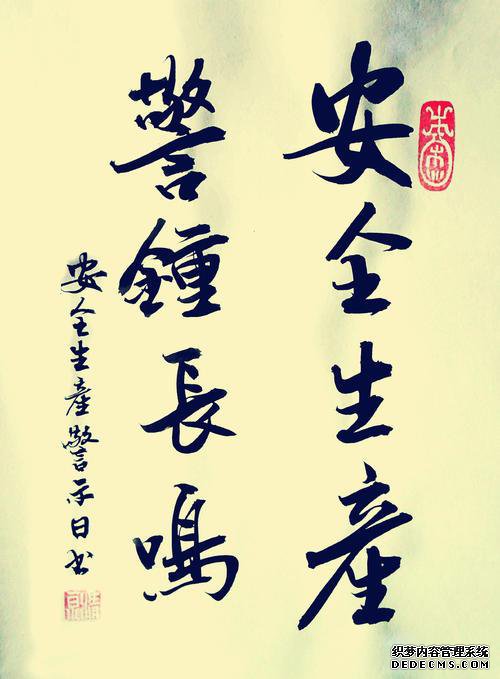 安全生產
警鐘長鳴
安全生產警示日书
织梦内容管理系统
DEDECMS.COM